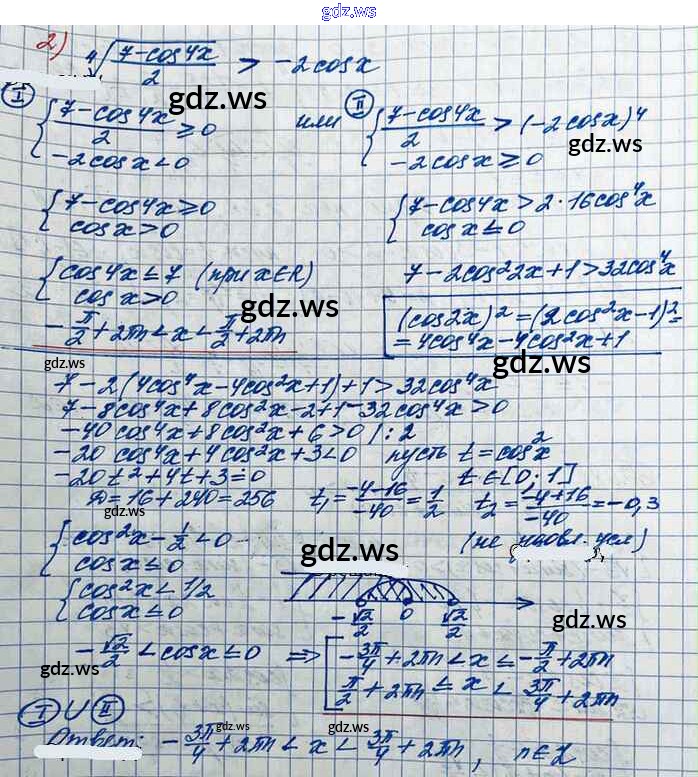 gdz.ws
2) ⁴√((7-cos4x)/2) > -2cosx
gdz.ws
I {(7-cos4x)/2 ≥ 0 или II {(7-cos4x)/2 > (-2cosx)⁴
{-2cosx < 0 {-2cosx ≥ 0
gdz.ws
{7-cos4x ≥ 0 {7-cos4x > 2·16cos⁴x
{cosx > 0 {cosx ≤ 0
{cos4x ≤ 7 (при x∈R) 7-2cos²2x+1 > 32cos⁴x
{cosx > 0
gdz.ws
-π/2+2πn < x < π/2+2πn
(cos2x)² = (2cos²x-1)² =
= 4cos⁴x-4cos²x+1
gdz.ws
gdz.ws
7-2(4cos⁴x-4cos²x+1)+1 > 32cos⁴x
7-8cos⁴x+8cos²x-2+1-32cos⁴x > 0
-40cos⁴x+8cos²x+6 > 0 /:2
-20cos⁴x+4cos²x+3 < 0 пусть t = cos²x
-20t²+4t+3 = 0 t∈[0;1]
D = 16+240 = 256 t₁ = (-4-16)/-40 = 1/2 t₂ = (-4+16)/-40 = -0,3
gdz.ws
(не удовл. усл)
{cos²x - 1/2 < 0
{cosx ≤ 0
gdz.ws
{cos²x < 1/2
{cosx ≤ 0
-√2/2 0 √2/2
gdz.ws
-√2/2 < cosx ≤ 0 ⇒ [-3π/4+2πn < x ≤ -π/2+2πn
[π/2+2πn ≤ x < 3π/4+2πn
gdz.ws
gdz.ws
I ∪ II
gdz.ws
gdz.ws
Ответ: -3π/4+2πn < x < 3π/4+2πn, n∈Z